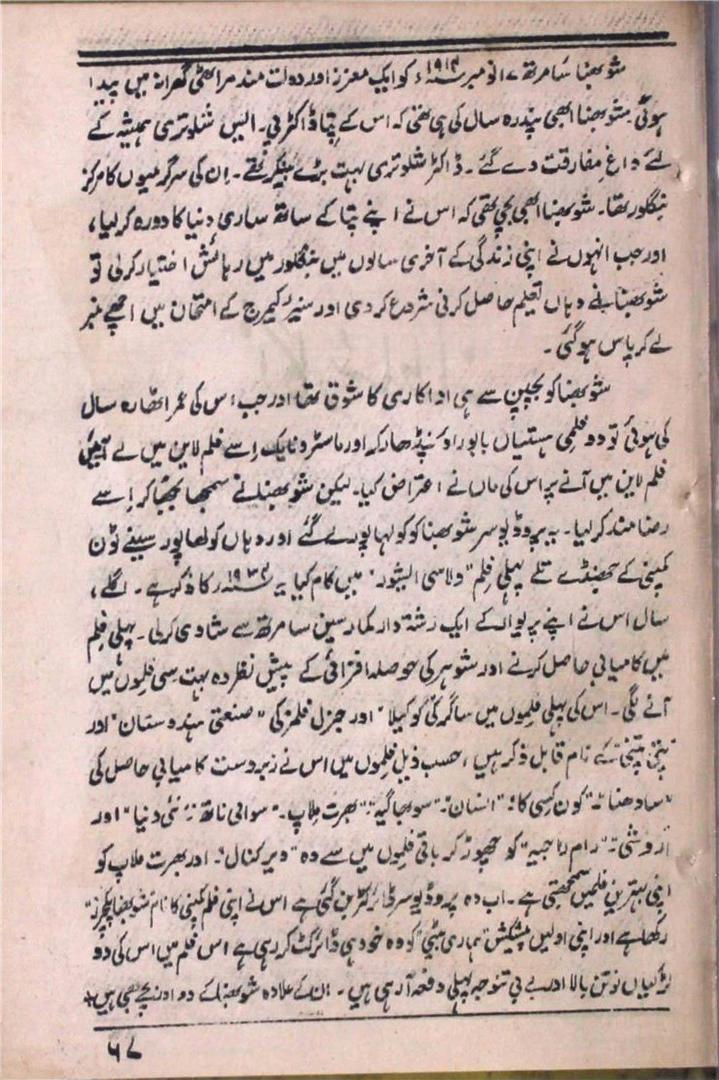 شوبھنا سامرتھ ۱۷ نومبر ۱۹۱۶ء کو ایک معزز اور دولت مند مراٹھی گھرانہ میں پیدا
ہوئی۔ شوبھنا ابھی پندرہ سال کی ہی تھی کہ اس کے پتا ڈاکٹر پی۔ ایس شلوتری ہمیشہ کے
لئے داغِ مفارقت دے گئے۔ ڈاکٹر شلوتری بہت بڑے بینکر تھے۔ اِن کی سرگرمیوں کا مرکز
بنگلور تھا۔ شوبھنا ابھی بچی تھی کہ اس نے اپنے پتا کے ساتھ ساری دنیا کا دورہ کر لیا،
اور جب انہوں نے اپنی زندگی کے آخری سالوں میں بنگلور میں رہائش اختیار کر لی تو
شوبھنا نے وہاں تعلیم حاصل کرنی شروع کر دی اور سنیر کیمبرج کے امتحان میں اچھے نمبر
لے کر پاس ہو گئی۔
شوبھنا کو بچپن سے ہی اداکاری کا شوق تھا اور جب اس کی عمر اٹھارہ سال
کی ہوئی تو دو فلمی ہستیاں بابو راؤ پنڈھارکر اور ماسٹر ونایک اِسے فلم لاین میں لے آئیں
فلم لاین میں آنے پر اس کی ماں نے اعتراض کیا۔ لیکن شوبھنا نے سمجھا بجھا کر اِسے
رضامند کر لیا۔ یہ پروڈیوسر شوبھنا کو کولہاپور لے گئے اور وہاں کولھاپور سینے ٹون
کمپنی کے جھنڈے تلے پہلی فلم "ولاسی ایشور" میں کام کیا یہ ۱۹۳۴ء کا ذکر ہے۔ اگلے،
سال اس نے اپنے پریوار کے ایک رشتہ دار کمار سین سامرتھ سے شادی کر لی۔ پہلی فلم
میں کامیابی حاصل کرنے اور شوہر کی حوصلہ افزائی کے پیش نظر وہ بہت سی فلموں میں
آنے لگی۔ اس کی پہلی فلموں میں ساگر کی "کوکیلا" اور جنرل فلمز کی "صنعتی ہندوستان" اور
"پتی پتنی" کے نام قابل ذکر ہیں، حسب ذیل فلموں میں اس نے زبردست کامیابی حاصل کی
"سادھنا" "کون کسی کا" "انسان"۔ "سوبھاگیہ"۔ "بھرت ملاپ۔" "سوامی ناتھ" "نئی دنیا" اور
اروشی"۔ "رام راجیہ" کو چھوڑ کر باقی فلموں میں سے وہ "ویر کنال"۔ اور بھرت ملاپ کو
اپنی بہترین فلمیں سمجھتی ہے۔ اب وہ پروڈیوسر ڈائرکٹر بن گئی ہے اس نے اپنی فلم کمپنی کا نام "شوبھنا پکچرز"
رکھا ہے اور اپنی اولیں پیشکش "ہماری بیٹی" کو وہ خود ہی ڈائرکٹ کر رہی ہے اس فلم میں اس کی دو
لڑکیاں نوتن بالا اور بے بی تنوجہ پہلی دفعہ آ رہی ہیں۔ اِن کے علاوہ شوبھنا کے دو اور بچے بھی ہیں
۶۷